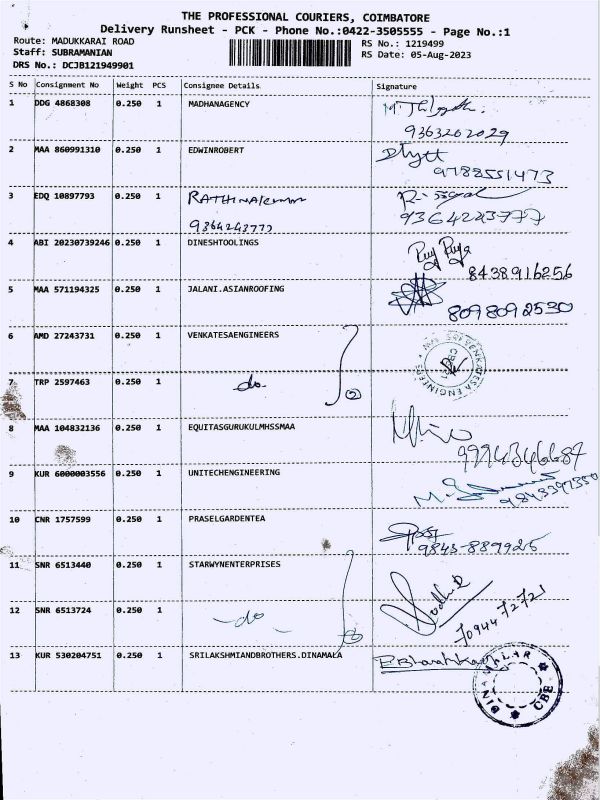 THE PROFESSIONAL COURIERS, COIMBATORE
Delivery Runsheet - PCK - Phone No.:0422-3505555 - Page No.:1
Route: MADUKKARAI ROAD
RS No.: 1219499
Staff: SUBRAMANIAN
RS Date: 05-Aug-2023
DRS No.: DCJB121949901
S No Consignment No Weight PCS Consignee Details Signature
1 DDG 4868308 0.250 1 MADHANAGENCY
9363202029
2 MAA 860991310 0.250 1 EDWINROBERT
9788551473
3 EDQ 10897793 0.250 1
9364243777 9364223777
4 ABI 20230739246 0.250 1 DINESHTOOLINGS
8438916256
5 MAA 571194325 0.250 1 JALANI.ASIANROOFING
8098092530
6 AMD 27243731 0.250 1 VENKATESAENGINEERS
SRI VENKATESA ENGINEERS
7 TRP 2597463 0.250 1 do. 2
8 MAA 104832136 0.250 1 EQUITASGURUKULMHSSMAA
9994346687
9 KUR 6000003556 0.250 1 UNITECHENGINEERING
9843397350
10 CNR 1757599 0.250 1 PRASELGARDENTEA
9843-889925
11 SNR 6513440 0.250 1 STARWYNENTERPRISES
12 SNR 6513724 0.250 1 -do-
7094472721
13 KUR 530204751 0.250 1 SRILAKSHMIANDBROTHERS.DINAMALA
DINAMALAR CBE